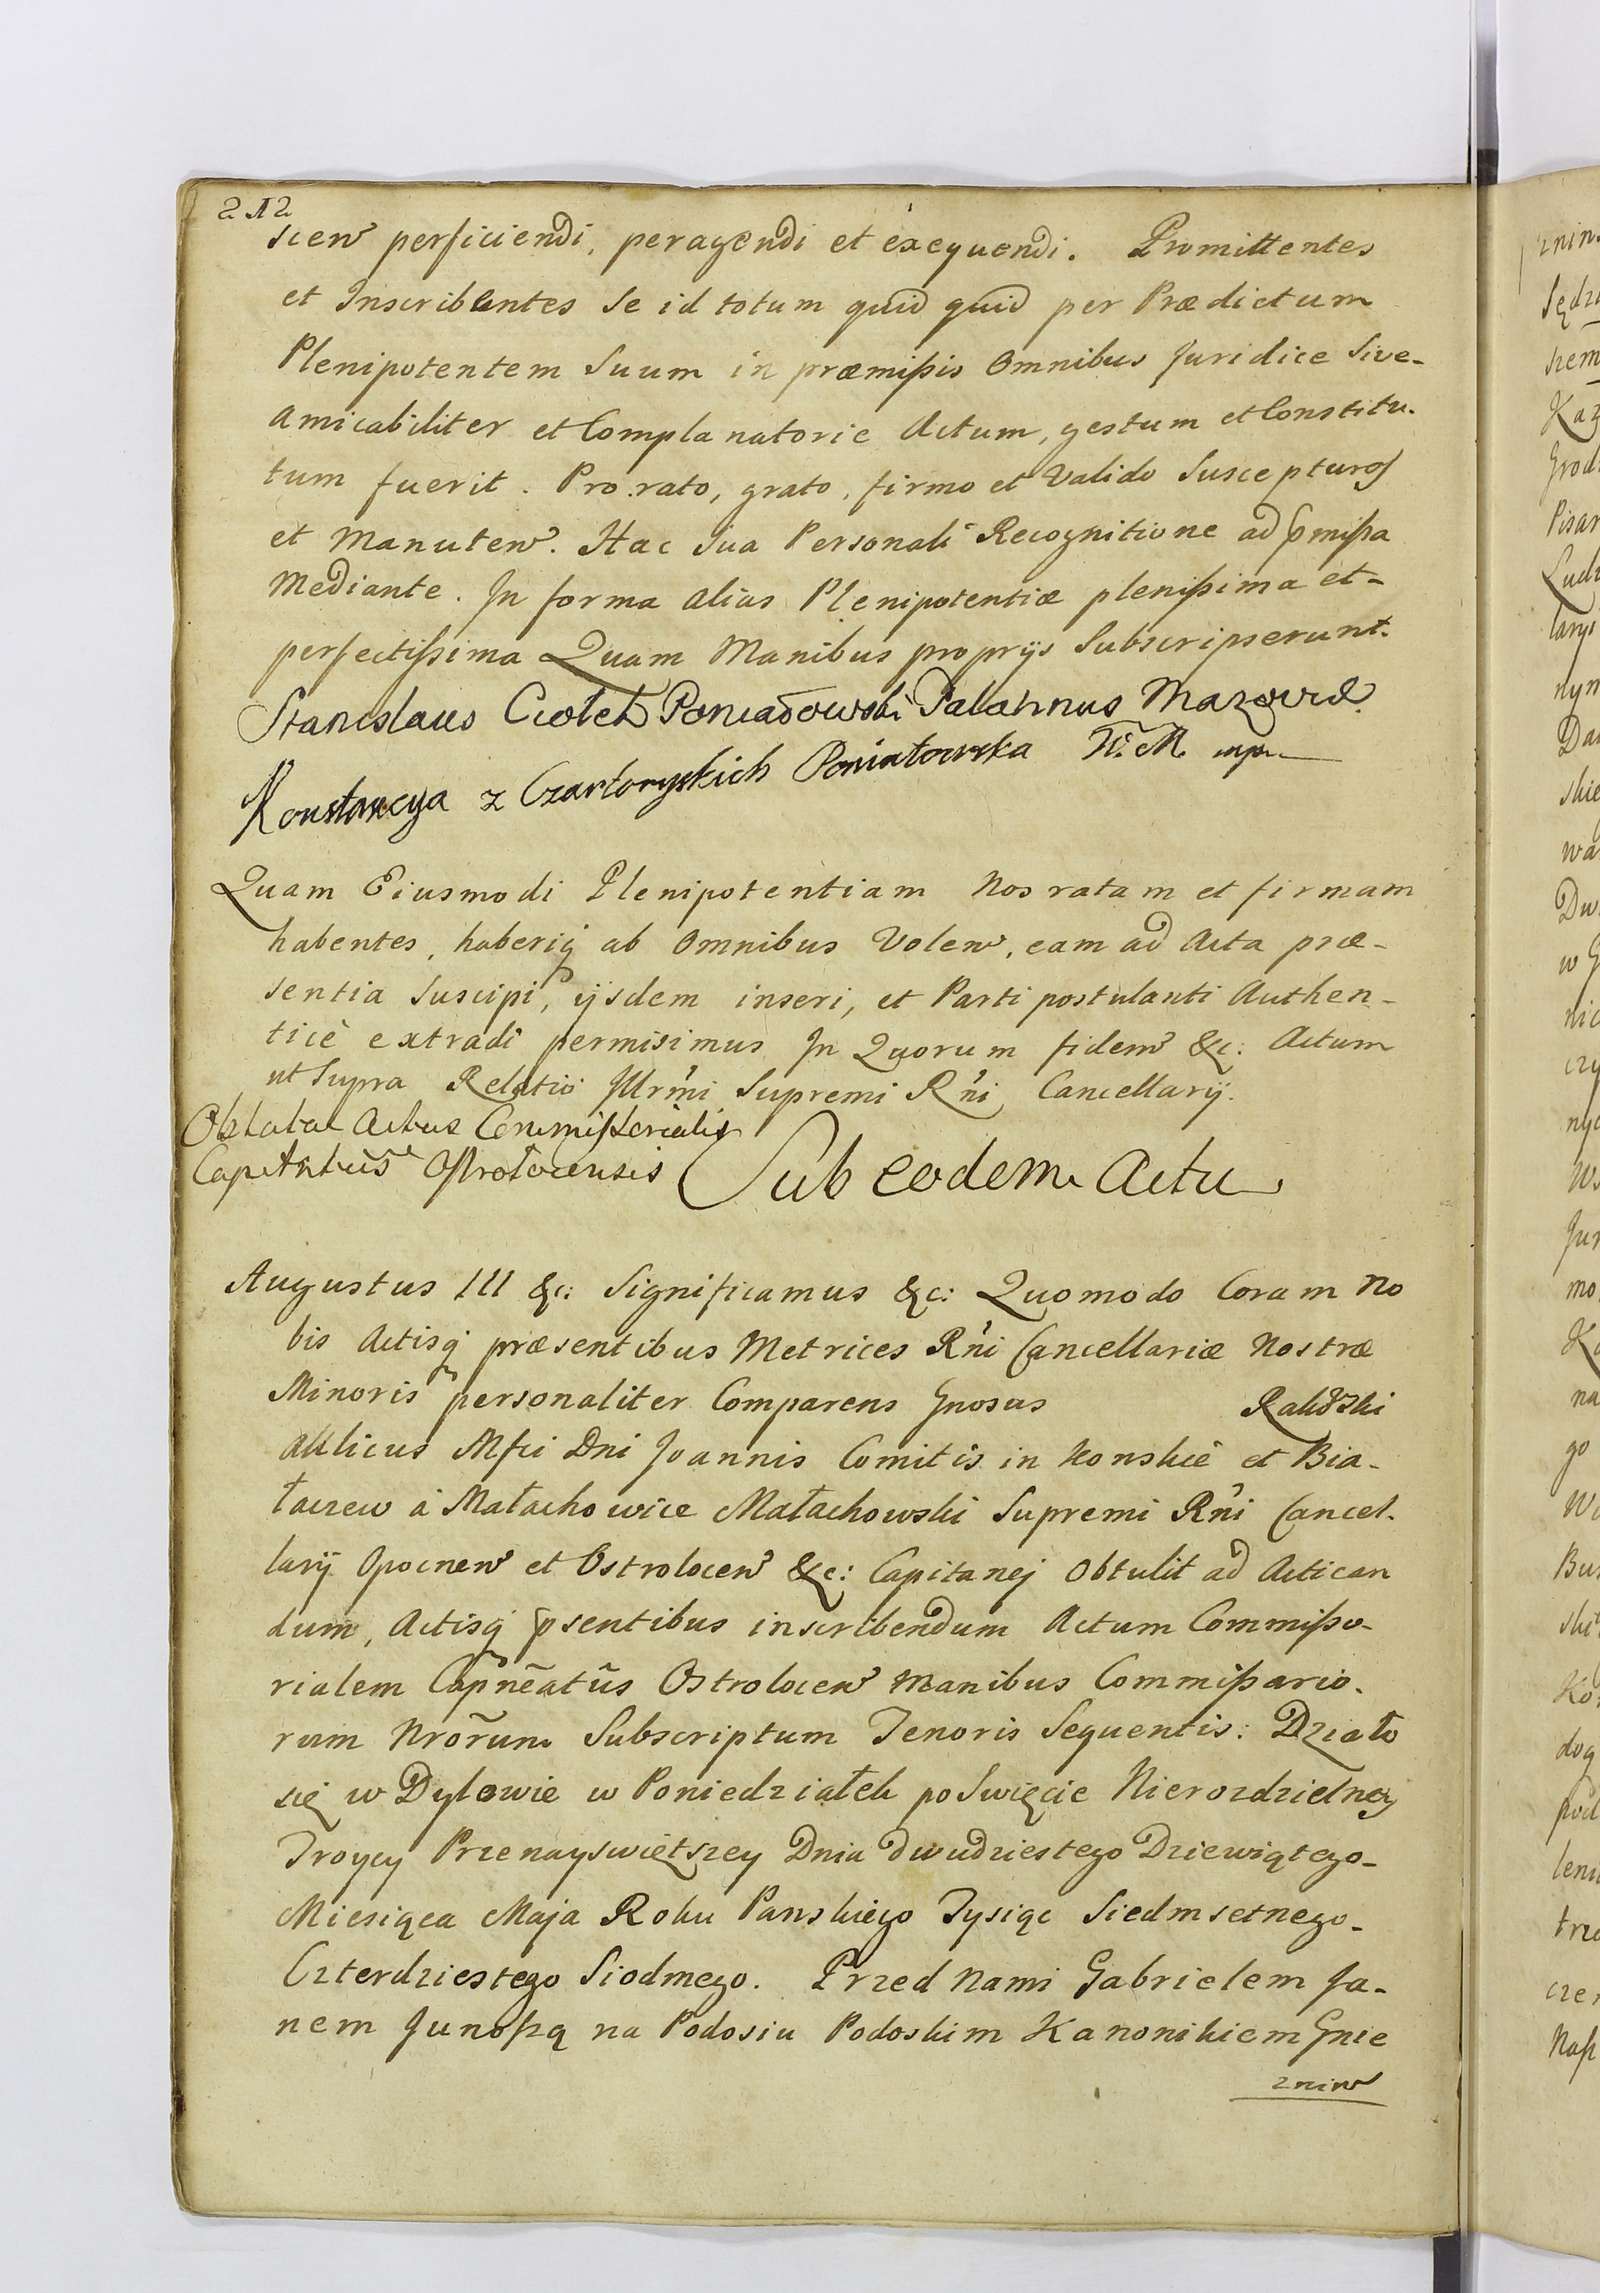 212
scen perficiendi, peragendi et exequendi. Promittentes
et Inscribentes Se id totum quid quid per Prædictum
Plenipotentem Suum in præmißis Omnibus Juridice Sive-
Amicabiliter et Complanatorie Actum, gestum et Constitu-
tum fuerit. Pro rato, grato, firmo et Valido Suscepturos
et Manuten. Hac Sua Personali Recognitione ad pmißa
Mediante. In forma alias Plenipotentiæ plenißima et-
perfectißima Quam Manibus proprijs Subscripserunt.
Stanislaus Ciołek Poniatowski Palatinus Mazoviæ
Konstancya z Czartoryskich Poniatowska W. M. mp
Quam Eiusmodi Plenipotentiam Nos ratam et firmam
habentes, haberiq ab Omnibus Volen, eam ad Acta præ-
sentia Suscipi, ijsdem inseri, et Parti postulanti Authen-
ticè extradi permisimus In Quorum fidem &c: Actum
ut Supra Relatio Illrmi Supremi Rni Cancellarij.
Oblatal Actus Commißorialis
Capitntus Ostrolocensis
Sub eodem Actu
Augustus III &c: Significamus &c: Quomodo Coram No
bis Actisq præsentibus Metrices Rni Cancellariæ Nostræ
Minoris personaliter Comparens Gnosus Rakowski
Aulicus Mfci Dni Joannis Comitis in Konskie et Bia-
łaczew á Małachowice Małachowski Supremi Rni Cancel-
larij Opocnen et Ostrolocen &c: Capitanej Obtulit ad Actican
dum, Actisq psentibus inscribendum Actum Commißo-
rialem Capnẽatũs Ostrolocen Manibus Commißario-
rum Nrõrum Subscriptum Tenoris Sequentis: Działo
się w Dylowie w Poniedziałek po Swięcie Nierozdzielney
Troycy Przenayswiętszey Dnia dwudziestego Dziewiątego-
Miesiąca Maja Roku Panskiego Tysiąc Siedmsetnego-
Czterdziestego Siodmego. Przed Nami Gabrielem Ja-
nem Junoßą na Podosiu Podoskim Kanonikiem Gnie
znin